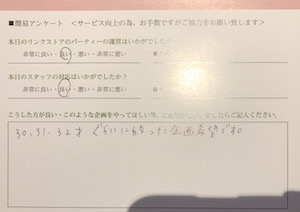 ■簡易アンケート <サービス向上の為、お手数ですがご協力をお願い致します>
本日のリンクストアのパーティーの運営はいかがでしたか?
非常に良い・良い・悪い・非常に悪い
本日のスタッフの対応はいかがでしたか?
非常に良い・良い・悪い・非常に悪い
こうした方が良い・このような企画をやってほしい等、ご記入ください。
30, 31, 32才 ぐらいに 企画希望です